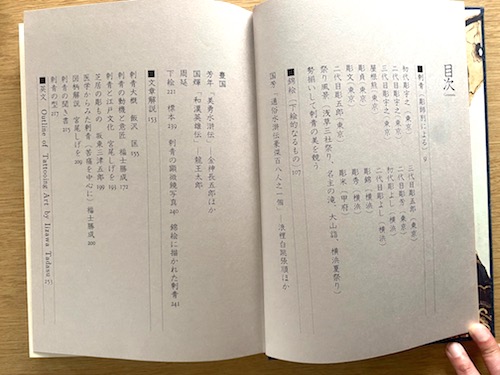 目次
■刺青(彫師別による) 9
初代彫宇之(東京) 三代目彫五郎(東京)
二代目彫宇之(東京) 二代目彫芳(東京)
三代目彫宇之(東京) 初代彫よし(横浜)
屋根熊(東京) 二代目彫よし(横浜)
彫貞(東京) 彫錦(横浜)
彫兼(東京) 彫寿(横浜)
二代目彫五郎(東京) 彫米(甲府)
祭り風景(浅草三社祭り、名主の滝、大山詣、横浜夏祭り)
勢揃いして刺青の美を競う
■錦絵(下絵的なるもの) 107
国芳「通俗水滸伝豪傑百八人之一個」—浪裡白跳張順ほか
豊国
芳年「美勇水滸伝」—金神長五郎ほか
国輝「和漢英雄伝」—龍王太郎
周延
下絵 221 標本 239 刺青の顕微鏡写真 240 錦絵に描かれた刺青 241
■文章解説 153
刺青大概 飯沢 匡 155
刺青の動機と意匠 福士勝成 172
刺青と江戸文化 宮尾しげを 193
芝居の彫もの 坂東三津五郎 199
医学からみた刺青(苦痛を中心に) 福士勝成 200
図柄解説 宮尾しげを 209
刺青の聞き書 215
刺青の型
■英文 Outline of Tattooing Art by Iizawa Tadasu 251